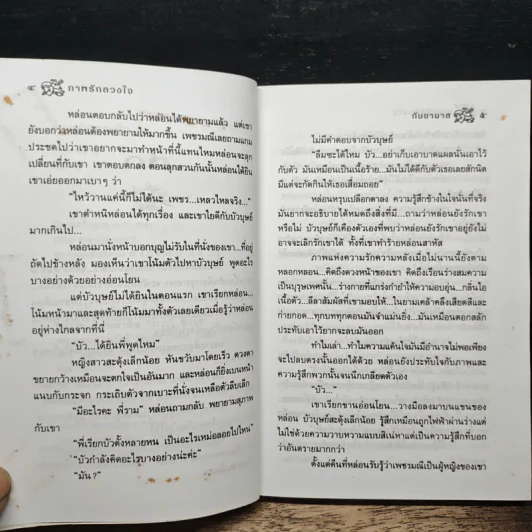 ๔ ภาพรักลวงใจ
หล่อนตอบกลับไปว่าหล่อนได้พยายามแล้ว แต่เขา
ยังบอกว่าหล่อนต้องพยายามให้มากขึ้น เพชรมณีเลยถามแกม
ประชดไปว่าเขาอยากจะมาทำหน้าที่นี้แทนไหมหล่อนจะลุก
เปลี่ยนที่กับเขา เขาตอบตกลง ตอนลุกสวนกันนั้นหล่อนได้ยิน
เขาเอ่ยออกมาเบาๆ ว่า
“ไหว้วานแค่นี้ก็ไม่ได้นะ เพชร...เหลวไหลจริง...”
เขาตำหนิหล่อนได้ทุกเรื่อง และเขาใยดีกับบัวบุรย์
มากเกินไป...
หล่อนมานั่งหน้าบอกบุญไม่รับในที่นั่งของเขา...ที่อยู่
ถัดไปข้างหลัง มองเห็นว่าเขาโน้มตัวไปหาบัวบุรย์ พูดอะไร
บางอย่างด้วยอย่างอ่อนโยน
แต่บัวบุรย์ไม่ได้ยินในตอนแรก เขาเรียกหล่อน...
โน้มหน้ามาและสุดท้ายก็โน้มมาทั้งตัวเลยเดียวเมื่อรู้ว่าหล่อน
อยู่ห่างไกลจากที่นี่
“บัว...ได้ยินพี่พูดไหม”
หญิงสาวสะดุ้งเล็กน้อย หันขวับมาโดยเร็ว ดวงตา
ขยายกว้างเหมือนจะตกใจเป็นอันมาก และหล่อนก็ยังเบนหน้า
แนบกับกระจก กระเถิบตัวจากเบาะที่นั่งจนเหลือตัวลีบเล็ก
“มีอะไรคะ พี่ราม” หล่อนถามกลับ พยายามสุภาพ
กับเขา
“พี่เรียกบัวตั้งหลายหน เป็นอะไรเหม่อลอยไปไหน”
“บัวกำลังคิดอะไรบางอย่างน่ะค่ะ”
“มัน?”
กันยามาส ๕
ไม่มีคำตอบจากบัวบุรย์
“ลืมซะได้ไหม บัว...อย่าเก็บเอาบาดแผลนั่นเอาไว้
กับตัว มันเหมือนเป็นเนื้อร้าย...มันไม่ได้ดีกับตัวเธอเลยสักนิด
มีแต่จะกัดกินให้เธอเสื่อมถอย”
หล่อนหรุบเปลือกตาลง ความรู้สึกข้างในใจนั้นที่จริง
มันยากจะอธิบายได้หมดถึงสิ่งที่มี...ถามว่าหล่อนยังรักเขา
หรือไม่ บัวบุรย์ก็เคืองตัวเองที่พบว่าหล่อนยังรักเขาอยู่ยังไม่
อาจจะเลิกรักเขาได้ ทั้งที่เขาทำร้ายหล่อนสาหัส
ภาพแห่งความรักความหลังเมื่อไม่นานนี้ยังตาม
หลอกหลอน...คิดถึงดวงหน้าของเขา คิดถึงเรือนร่างสมความ
เป็นบุรุษเพศนั้น...ร่างกายที่แกร่งกำยำให้ความอบอุ่น...กลิ่นไอ
เนื้อตัว...ลีลาสัมผัสที่เขามอบให้...ในยามเคล้าคลึงเสียดสีและ
ก่ายกอด...ทุกบททุกตอนมันจำแม่นยิ่ง...มันเหมือนตอกสลัก
ประทับเอาไว้ยากจะลบมันออก
ทำไมเล่า...ทำไมความแค้นใจมันมีอำนาจไม่พอเพียง
จะไปลบตรงนั้นออกได้ด้วย หล่อนยังประทับใจกับภาพและ
ความรู้สึกพวกนั้นจนนึกเกลียดตัวเอง
“บัว...”
เขาเรียกขานอ่อนโยน...วางมือลงมาบนแขนของ
หล่อน บัวบุรย์สะดุ้งเล็กน้อย รู้สึกเหมือนถูกไฟฟ้าผ่านร่างแต่
ไม่ใช่ด้วยความวาบหวามแบบสิเน่หาแต่เป็นความรู้สึกที่บอก
ว่าอันตรายมากกว่า
ตั้งแต่คืนที่หล่อนรับรู้ว่าเพชรมณีเป็นผู้หญิงของเขา